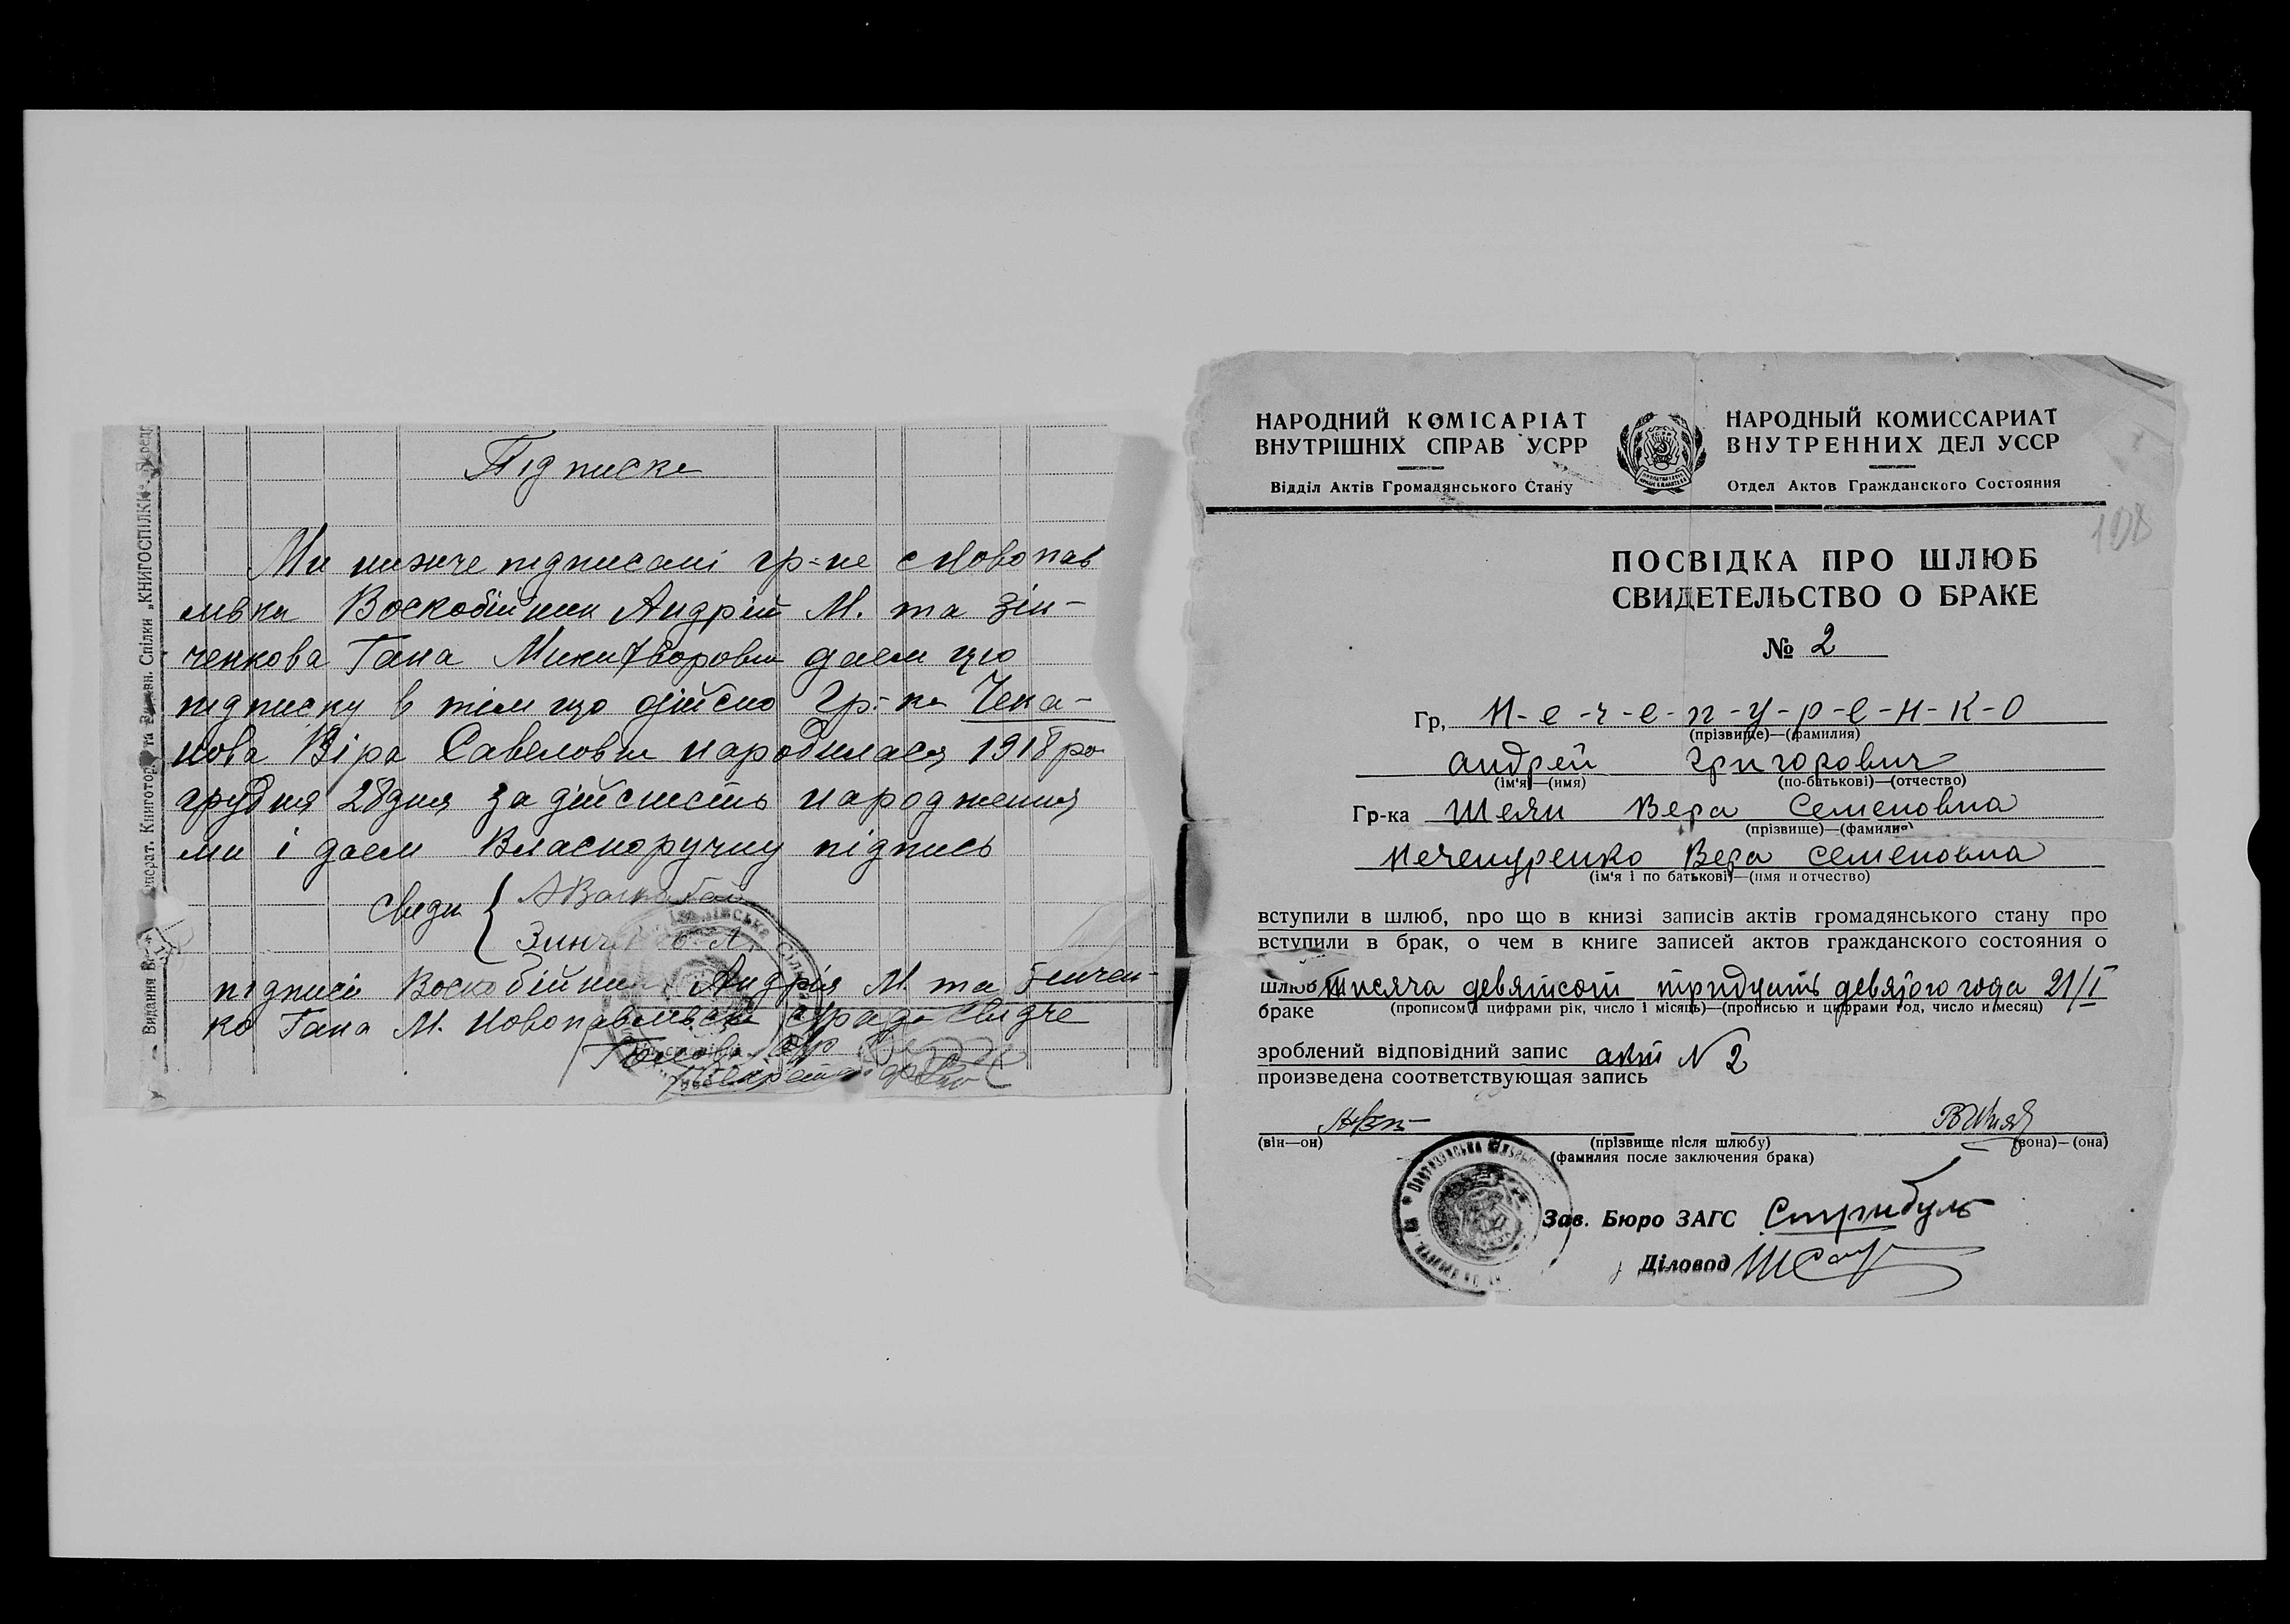 Підписка
Ми нижче підписані гр-не с Новопав
лівка Воскобійник Андрій М. та Зін-
ченкова Гана Микифворовна даем цю
підписку в тім що дійсно гр-ка Чека-
нова Віра Савеловна народилася 1918 ро
грудня 28 дня за дійсність народження
ми і даем Власноручну підпись
Сведки
підписи Воскобійник Андрія М та Зинчен-
ко Гана М. Новопавлівська с/рада свидче
Голова с/р
Секретар
НАРОДНИЙ КОМІСАРІАТ
ВНУТРІШНІХ СПРАВ УСРР
Відділ Актів Громадянського Стану
НАРОДНЫЙ КОМИССАРИАТ
ВНУТРЕННИХ ДЕЛ УССР
Отдел Актов Гражданского Состояния
108
ПОСВІДКА ПРО ШЛЮБ
СВИДЕТЕЛЬСТВО О БРАКЕ
№ 2
Гр, Н-е-ч-е-п-у-р-е-н-к-о
(прізвище)—(фамилия)
Андрей Григорович
(ім'я)—(имя) (по-батькові)—(отчество)
Гр-ка Шеян Вера Семеновна
(прізвище)—(фамилия)
Нечепуренко Вера Семеновна
(ім'я і по батькові)—(имя и отчество)
вступили в шлюб, про що в книзі записів актів громадянського стану про
вступили в брак, о чем в книге записей актов гражданского состояния о
шлюб тисяча девятсот тридцать девятого года 21/I
браке (прописом і цифрами рік, число і місяць)—(прописью и цифрами год, число и месяц)
зроблений відповідний запис акт N 2
произведена соответствующая запись
(він—он) (прізвище після шлюбу) (вона)—(она)
(фамилия после заключения брака)
Зав. Бюро ЗАГС Стрибуль
Діловод